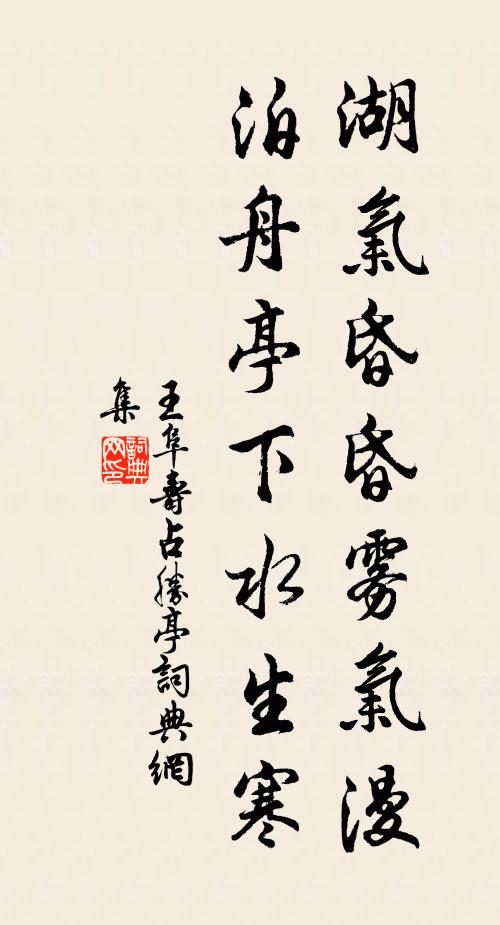 湖氣昏昏雾氣漫
泊舟亭下水生寒
王阜壽占勝亭詞典網
集
詞典
网印